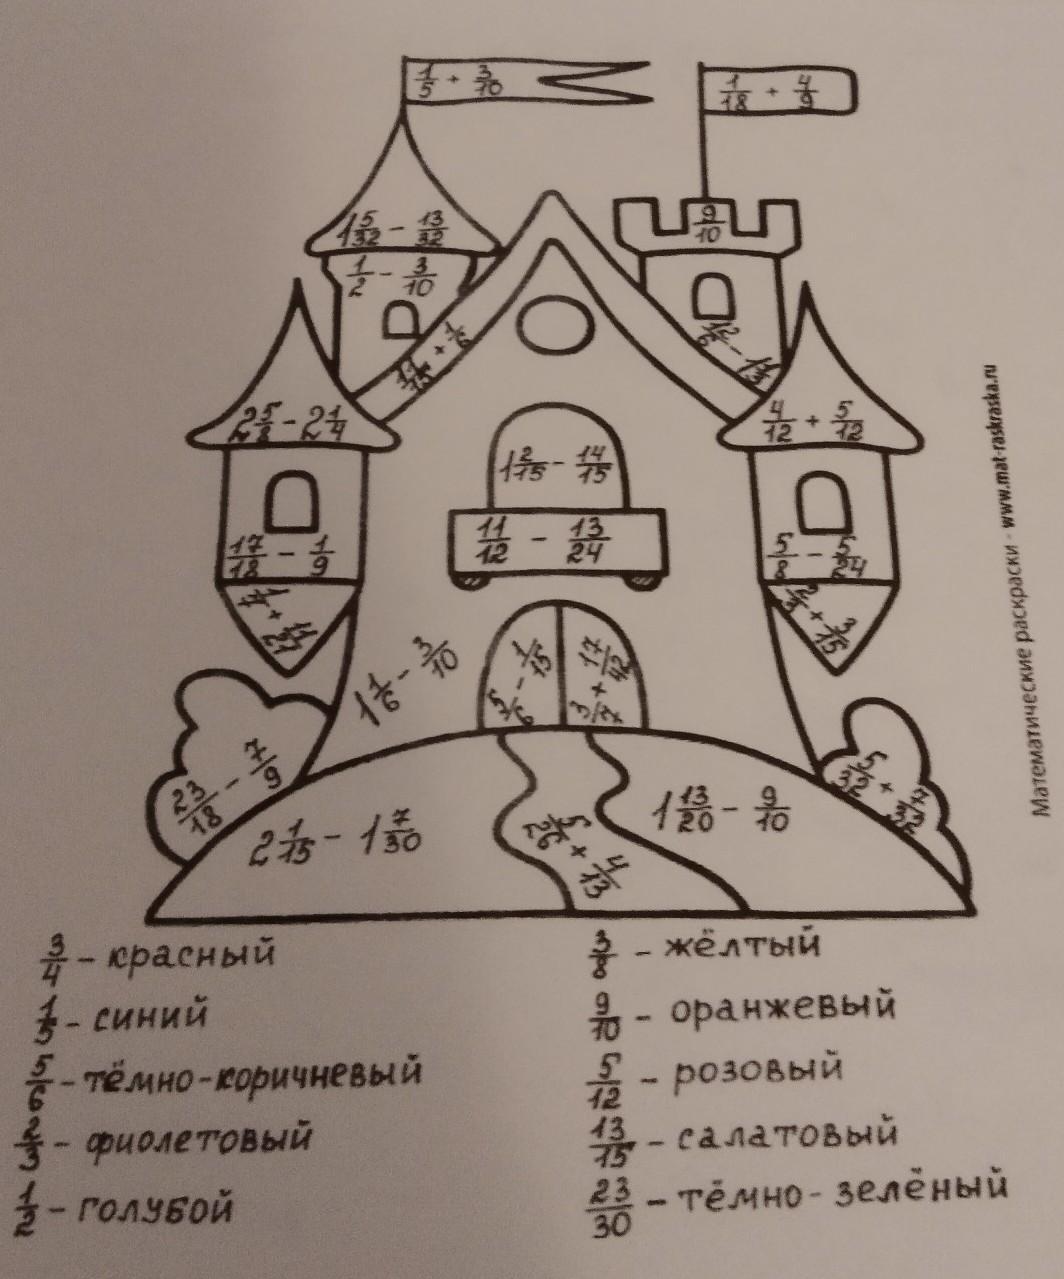 1/5 + 3/10
1/18 + 4/9
1 5/32 - 13/32
9/10
1/2 - 3/10
11/15 + 1/6
2 5/8 - 2 1/4
4/12 + 5/12
1 2/15 - 14/15
11/12 - 13/24
17/18 - 1/9
5/8 - 5/24
2/3 + 3/15
1 1/6 - 3/10
5/6 - 1/15
3/7 + 17/42
23/18 - 7/9
5/32 + 7/32
2 1/15 - 1 7/30
5/26 + 4/13
1 13/20 - 9/10
Математические раскраски - www.mat-raskraska.ru
3/4 - красный
1/5 - синий
5/6 - тёмно-коричневый
2/3 - фиолетовый
1/2 - голубой
3/8 - жёлтый
9/10 - оранжевый
5/12 - розовый
13/15 - салатовый
23/30 - тёмно-зелёный